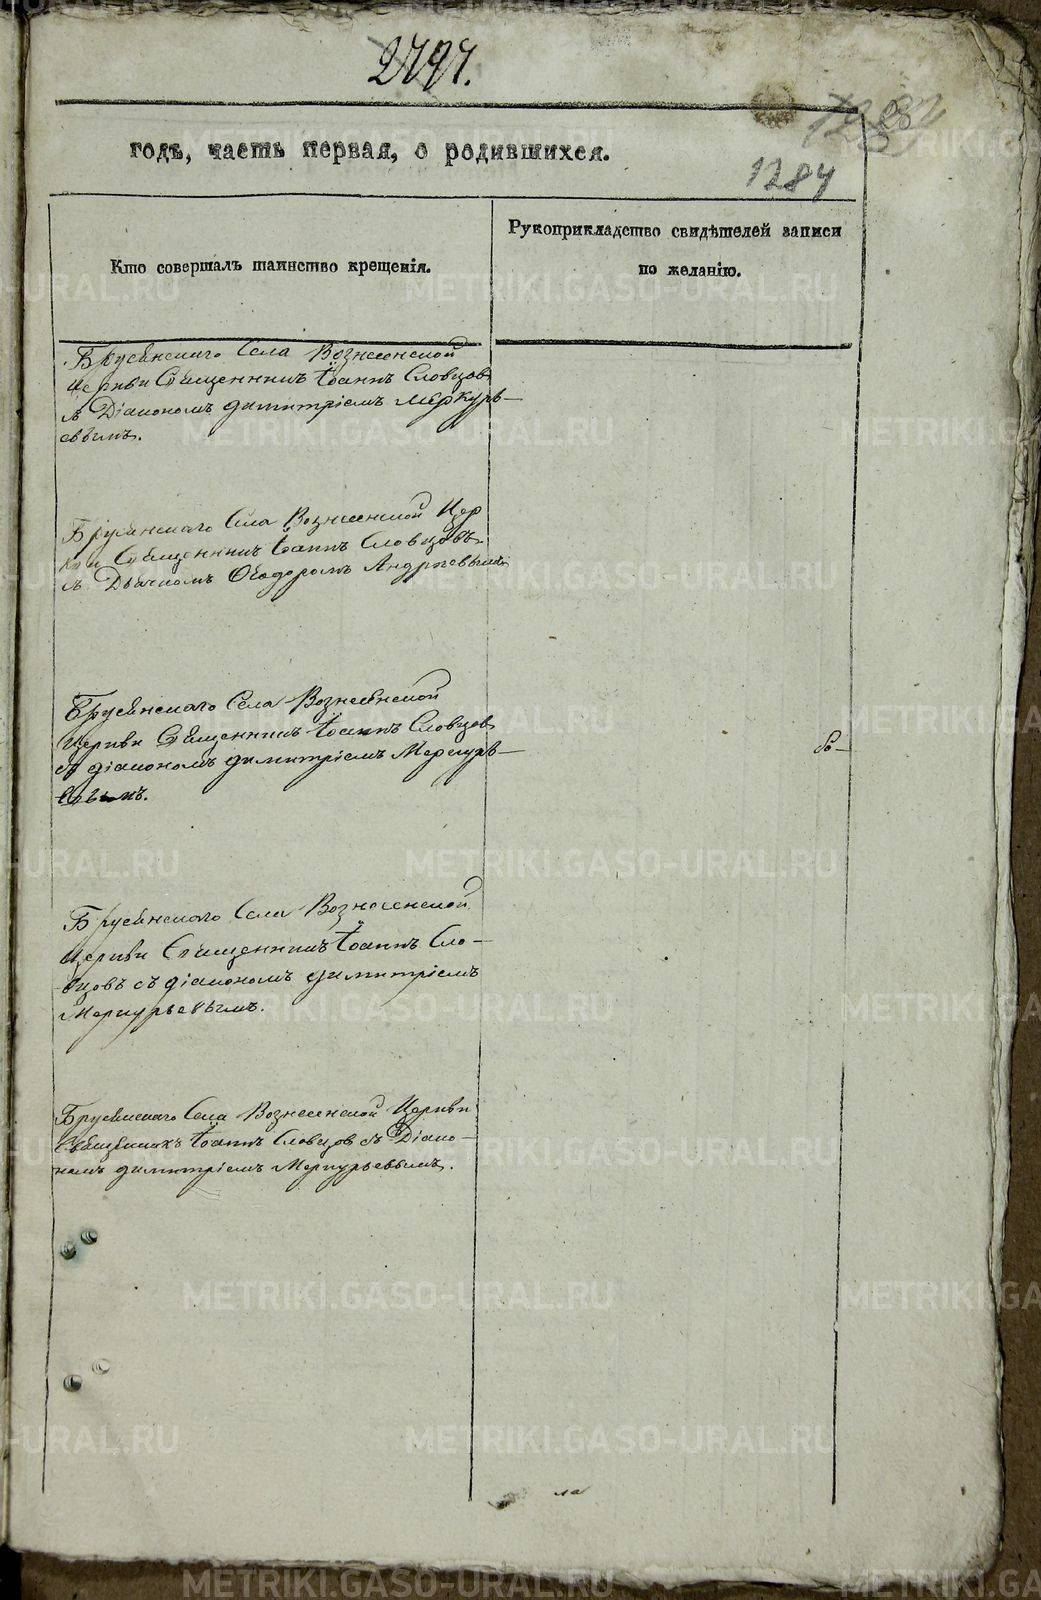 2797.
1284
годъ, часть первая, о родившихся.
Кто совершалъ таинство крещенія.
Рукоприкладство свидѣтелей записи
по желанію.
Брусянскаго Села Вознесенской
Церкви Священникъ Іоаннъ Словцовъ
съ Діакономъ Димитріемъ Меркурь-
евымъ.
Брусянскаго Села Вознесенской Цер
кви Священникъ Іоаннъ Словцовъ
съ Дьячкомъ Ѳеодоромъ Андреевымъ
Брусянскаго Села Вознесенской
Церкви Священникъ Іоаннъ Словцовъ
съ діакономъ Димитріемъ Меркурь-
евымъ.
Брусянскаго Села Вознесенской
Церкви Священникъ Іоаннъ Сло-
вцовъ съ діакономъ Димитріемъ
Меркурьевымъ.
Брусянскаго Села Вознесенской Церкви
Священникъ Іоаннъ Словцов съ Діако-
номъ Димитріемъ Меркурьевымъ.
METRIKI.GASO-URAL.RU